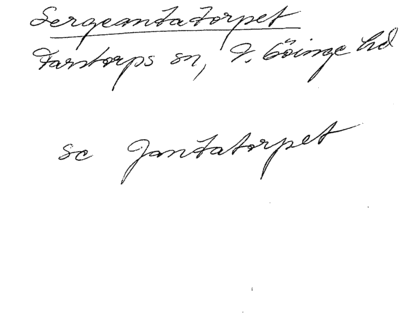 Sergeantatorpet
Farstorps sn, V. Göinge hd
se Jantatorpet